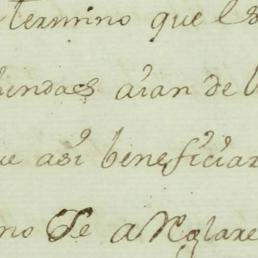 termino que es
iendas avian de
ue asi beneficiar
no se arreglare